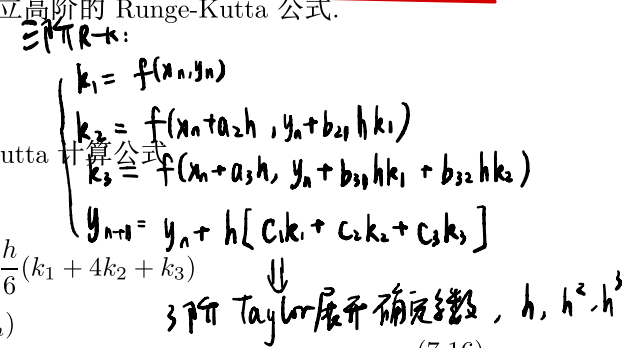 立高阶的 Runge-Kutta 公式.
三阶R-K:
k₁ = f(xₙ,yₙ)
k₂ = f(xₙ+a₂h , yₙ+b₂₁hk₁)
utta 计算公式
k₃ = f(xₙ+a₃h, yₙ+b₃₁hk₁ + b₃₂hk₂)
yₙ₊₁ = yₙ + h[c₁k₁ + c₂k₂ + c₃k₃]
h/6(k₁ + 4k₂ + k₃)
⇓
3阶 Taylor展开确定系数 , h, h², h³
)
(7.16)